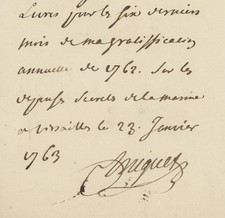 Livres pour les six derniers
mois de ma gratiffication
annuelle de 1762. Sur les
depenses Secrets de la marine
a Versailles le 23. Janvier
1763